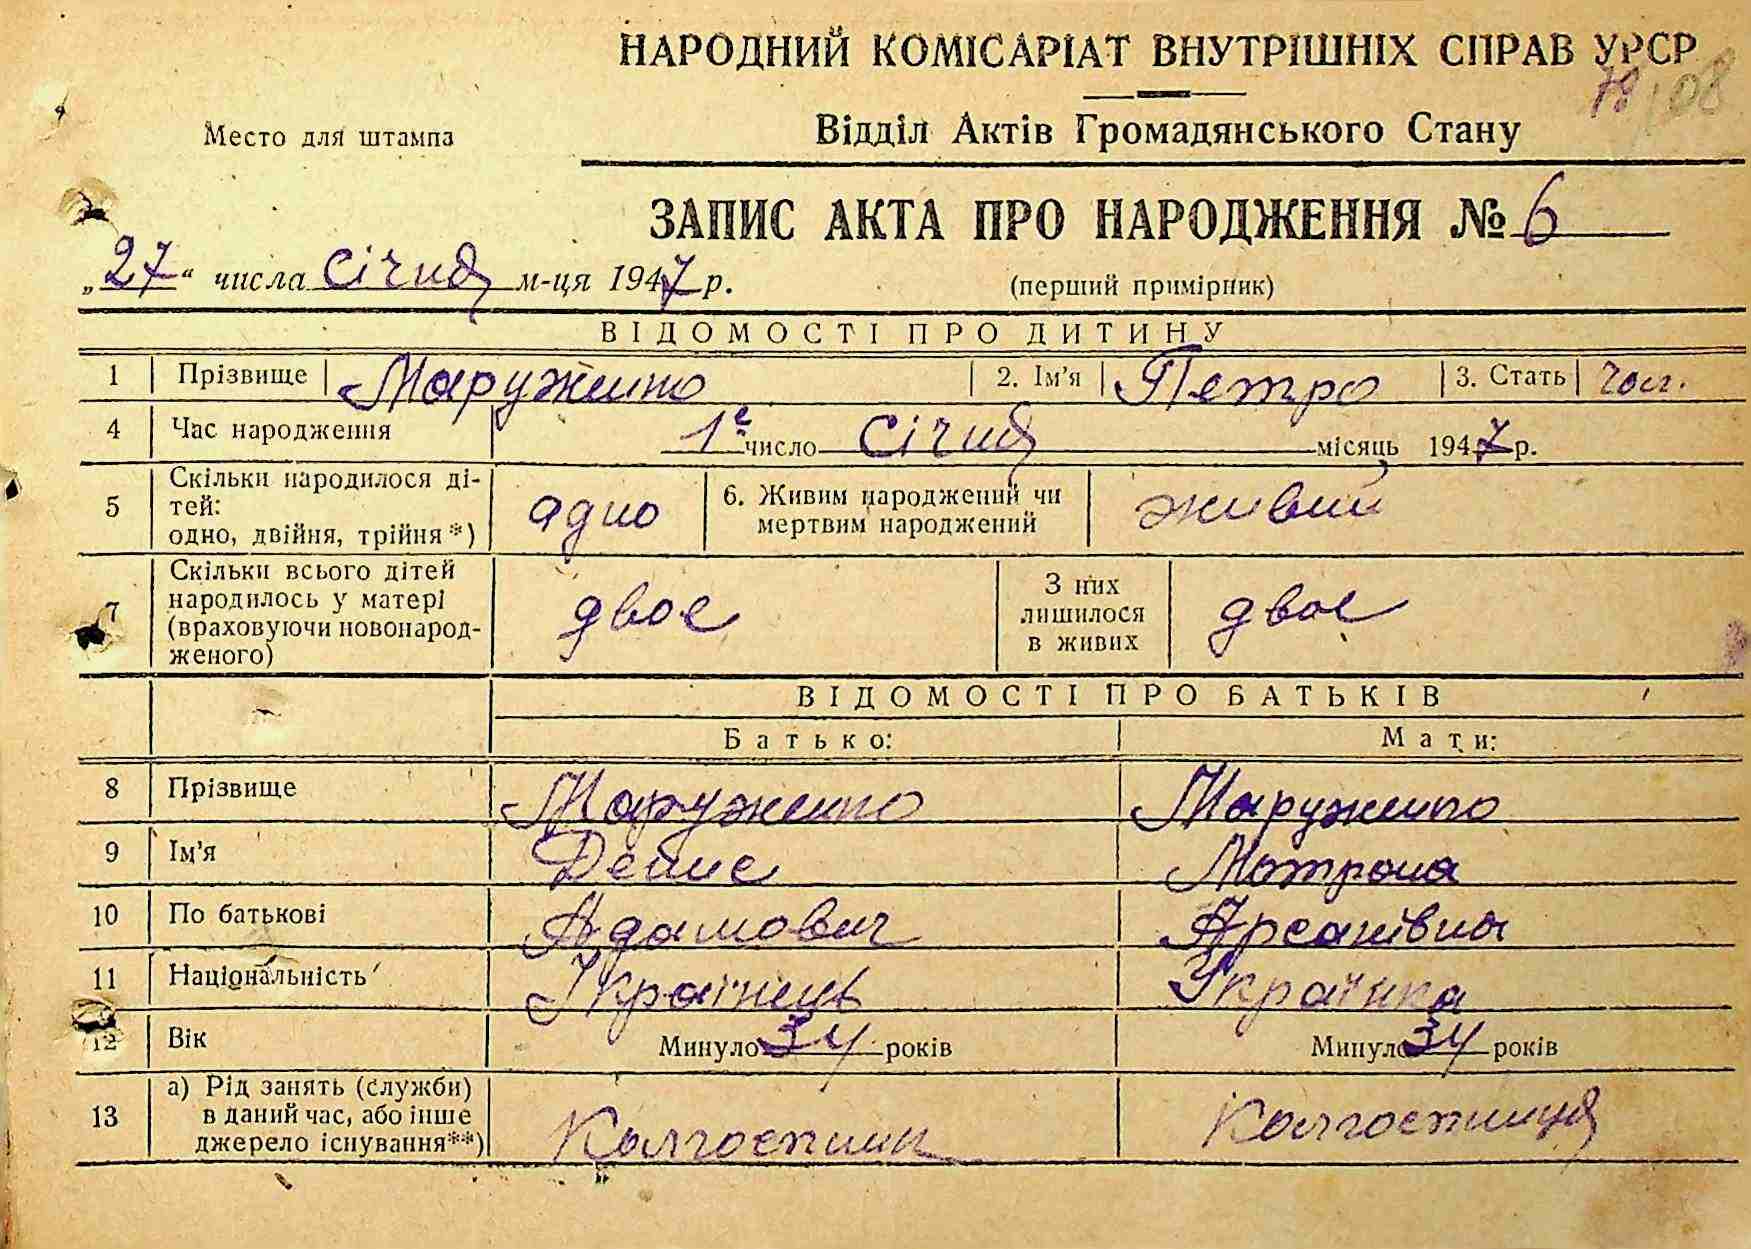 НАРОДНИЙ КОМІСАРІАТ ВНУТРІШНІХ СПРАВ УРСР
Место для штампа
Відділ Актів Громадянського Стану
ЗАПИС АКТА ПРО НАРОДЖЕННЯ № 6
„27“ числа січня м-ця 1947 р.
(перший примірник)
ВІДОМОСТІ ПРО ДИТИНУ
1 Прізвище Маружено 2. Ім'я Петро 3. Стать чол.
4 Час народження 1е число січня місяць 1947 р.
5 Скільки народилося ді-
тей:
одно, двійня, трійня*) адно
6. Живим народжений чи
мертвим народжений живий
7 Скільки всього дітей
народилось у матері
(враховуючи новонарод-
женого) двоє
З них
лишилося
в живих двоє
ВІДОМОСТІ ПРО БАТЬКІВ
Батько: Мати:
8 Прізвище Маружено Маружено
9 Ім'я Денис Мотрона
10 По батькові Адамович Арсанівна
11 Національність Українець Українка
12 Вік Минуло 34 років Минуло 34 років
13 а) Рід занять (служби)
в даний час, або інше
джерело існування**) Колгоспник Колгоспниця